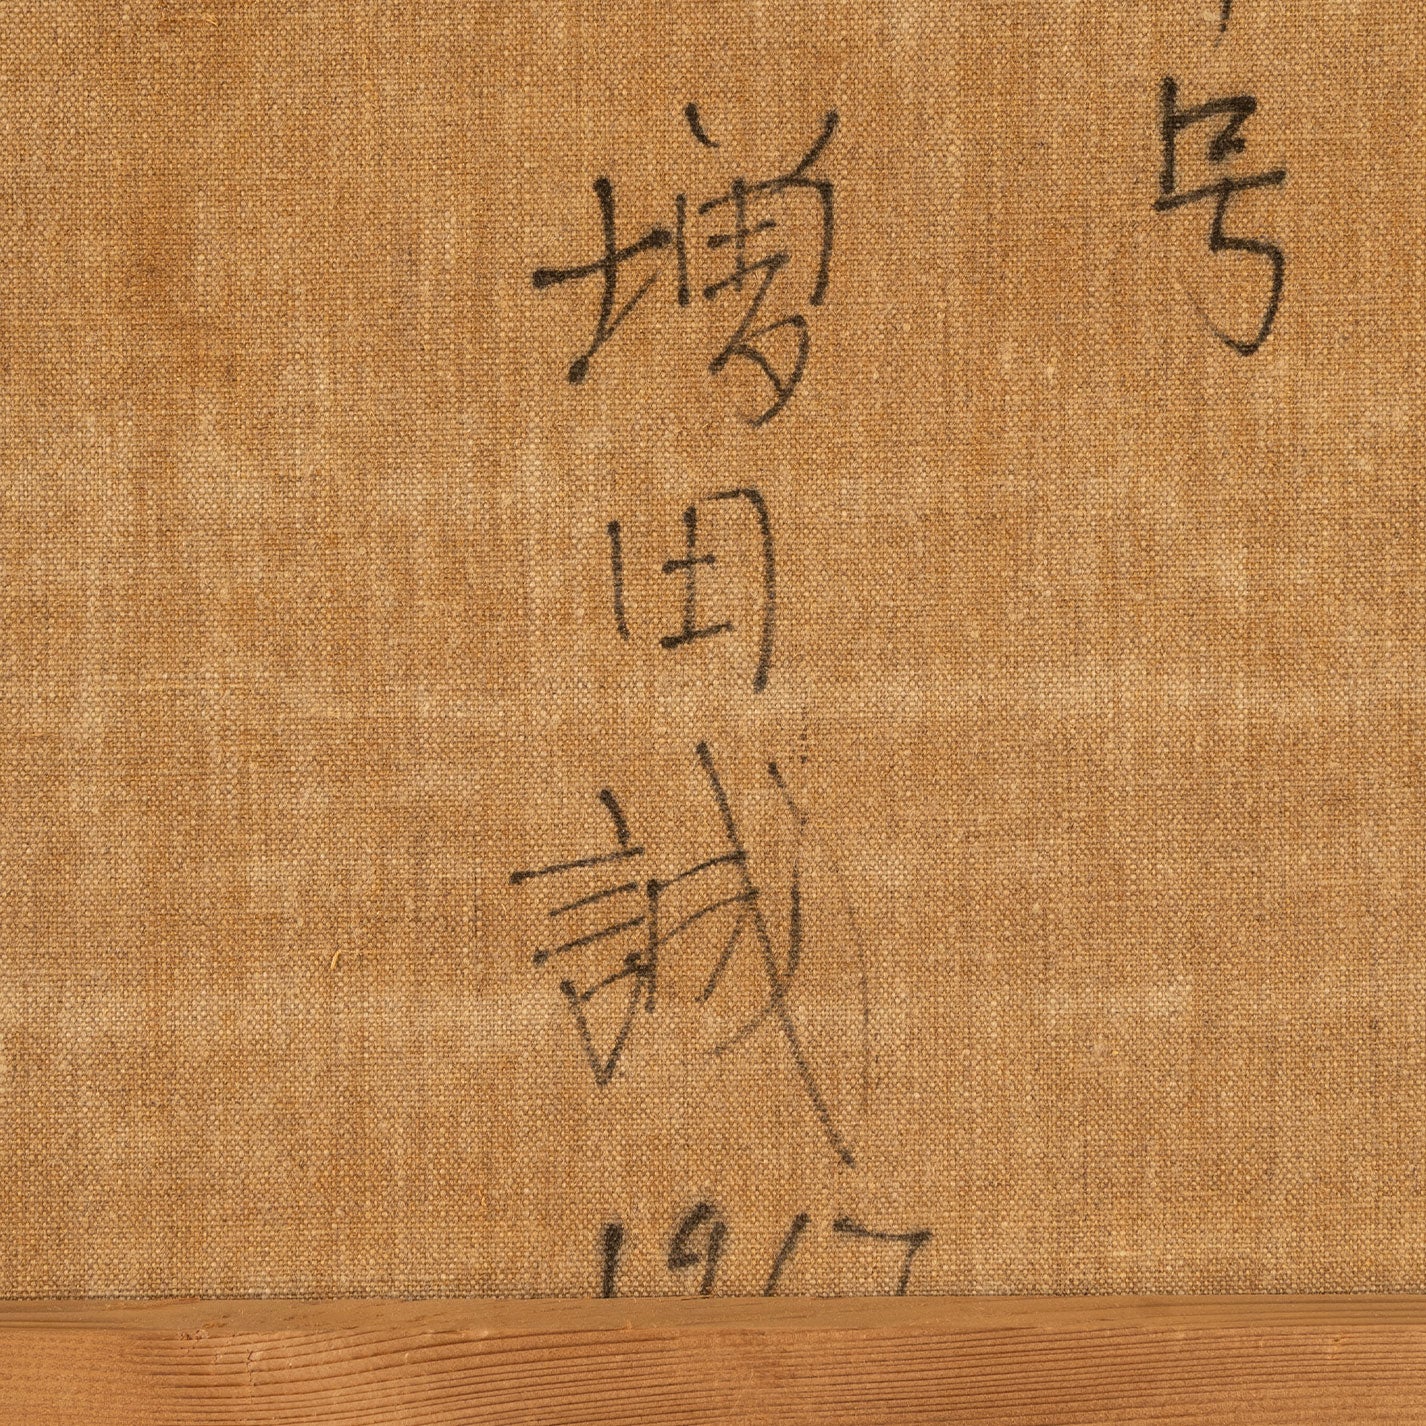 号
増田誠
1917